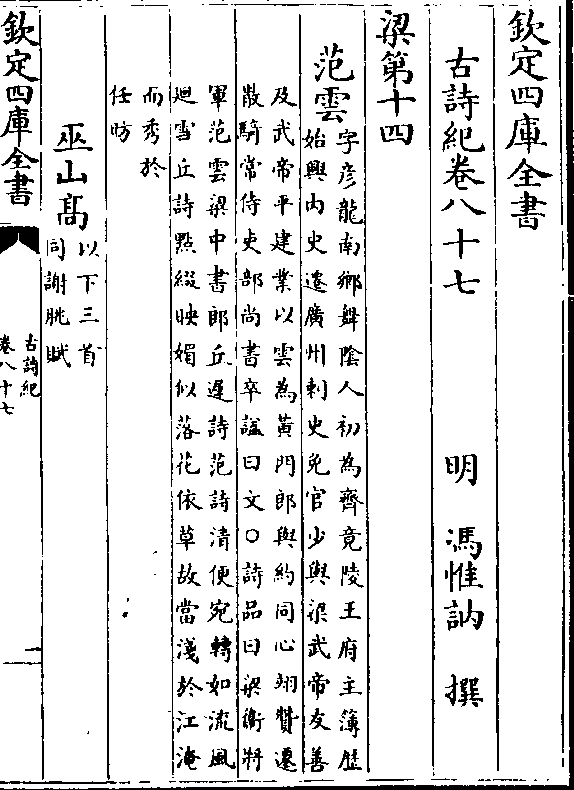 欽定四庫全書
古詩紀卷八十七
明 馮惟訥 撰
梁第十四
范雲
字彦龍南鄉舞隂人初為齊竟陵王府主簿歴
始興内史遷廣州刺史免官少與梁武帝友善
及武帝平建業以雲為黄門郎與約同心翊贊遷
散騎常侍吏部尚書卒諡曰文○詩品曰梁衛將
軍范雲梁中書郎丘遲詩范詩清便宛轉如流風
廻雪丘詩㸃綴映媚似落花依草故當淺於江淹
而秀於
任昉
巫山髙
以下三首
同謝朓賦
欽定四庫全書
古詩紀
卷八十七
一